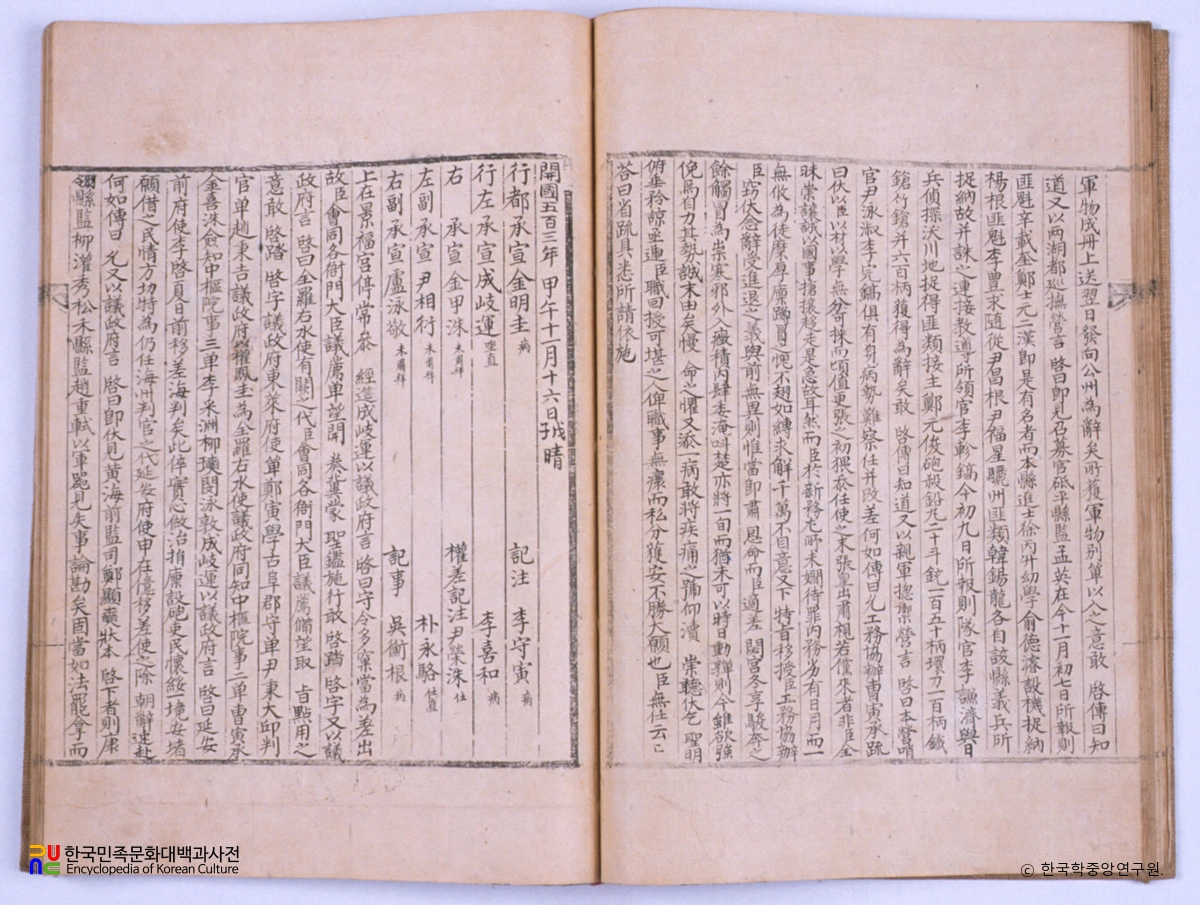 軍物成冊上送翌日發向公州爲辭矣所獲軍物別單以入之意敢 啓傳曰知
道又以兩湖都巡撫營言 啓曰卽見召募官砥平縣監孟英在今十一月初七日所報則
匪魁辛載奎鄭士元二漢卽是有名者而本縣進士徐丙升幼學俞德濬設機捉納
楊根匪魁李豊求隨從尹昌根尹福星驪州匪類韓錫龍各自該縣義兵所
捉納故并誅之連接敎導所領官李軫鎬今初九日所報則隊官李謙濟與日
兵偵探沃川地捉得匪類接主鄭元俊砲殺鉛丸二十斗銃一百五十柄環刀一百柄鐵
鎗竹鎗并六百柄獲得爲辭矣敢 啓傳曰知道又以親軍摠禦營言 啓曰本營哨
官尹泳淑李完鎬俱有身病勢難察任并改差何如傳曰允工務協辦曹寅承疏
曰伏以臣以材以學無分可採而頃値更張之初猥忝任使之末張皇出肅規若儻來者非臣全
昧常讓誠以國事搶攘趍走是急故耳然而臣於新務尤所未嫺待罪內務劣有日月而一
無攸爲徒糜厚廩蹐冒之愧不翅如縛求解千萬不自意又下 特旨移授臣工務協辦
臣竊伏念辭受進退之義與前無異則惟當卽肅 恩命而臣適差 閟宮冬享駿奔之
餘觸冒爲祟寒邪外入癥積內肆委淹叫楚亦將一旬而猶未可以時日動彈則今雖欲强
俛爲自力其勢誠末由矣慢 命之懼又添一病敢將疾痛之號仰瀆 崇聽伏乞 聖明
俯垂矜諒並逓臣職回授可堪之人俾職事無瘝而私分獲安不勝大願也臣無任云云
答曰省疏具悉所請依施
開國五百三年 甲午十一月十六日戊子晴
行都承宣金明圭病 記注 李守寅病
行左承宣成岐運坐直 李喜和病
右 承宣金甲洙未肅拜 權差記注尹滎洙仕
左副承宣尹相衍未肅拜 朴永輅仕直
右副承宣盧泳敬未肅拜 記事 吳衡根病
上在景福宮停常參 經筵成岐運以議政府言 啓曰守令多窠當爲差出
故臣會同各衙門大臣議薦單望開 奏冀蒙 聖鑑施行敢 啓踏 啓字又以議
政府言 啓曰全羅右水使有闕之代臣會同各衙門大臣議薦備望取 旨點用之
意敢 啓踏 啓字議政府東萊府使單鄭寅學古阜郡守單尹秉大卬判
官單趙東吉議政府以權鳳圭爲全羅右水使議政府同知中樞院事二單曹寅承
金喜洙僉知中樞院事三單李釆淵柳㙆閔泳敦成岐運以議政府言 啓曰延安
前府使李啓夏日前移差海判矣此倅實心做治捐廩設砲吏民懷綏一境安堵
願借之民情方切特爲仍任海州判官之代延安府使申在億移差使之除 朝辭迨赴
何如傳曰 允又以議政府言 啓曰卽伏見黃海前監司鄭顯奭狀本 啓下者則康
翎縣監柳灌秀松禾縣監趙重軾以軍器見失事論勘矣固當如法飛拿而
한국민족문화대백과사전
Encyclopedia of Korean Culture
ⓒ 한국학중앙연구원.